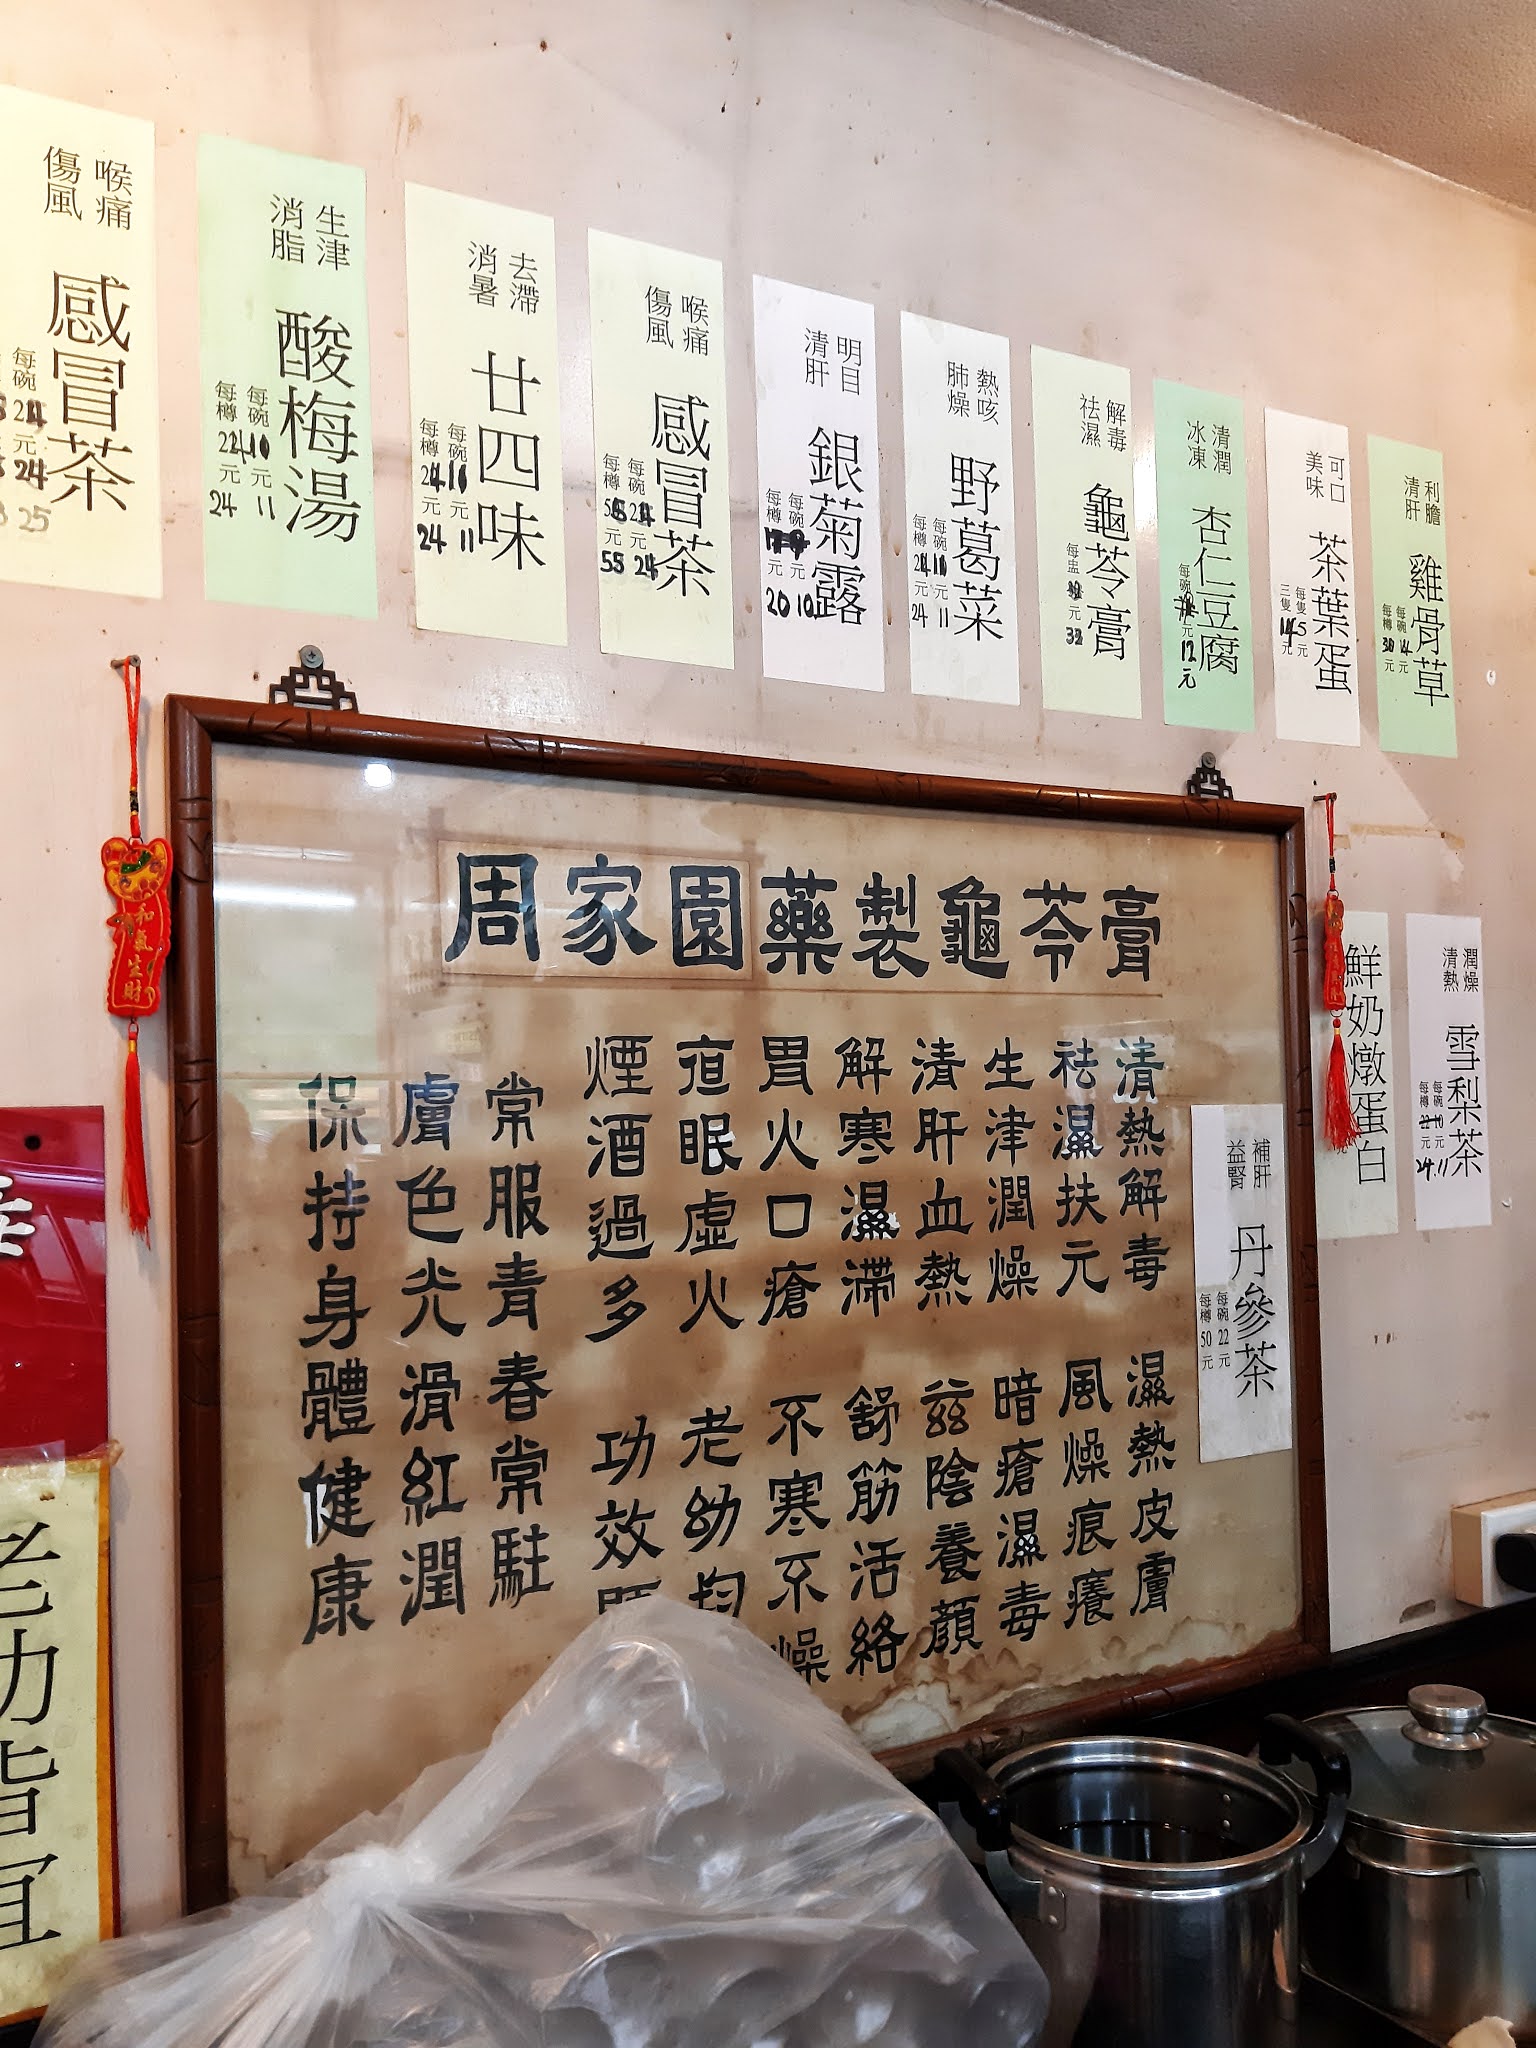 喉痛
傷風
感冒茶
每碗
24元
24
25
生津
消脂
酸梅湯
每碗10元
11
每樽22元
24
去滯
消暑
廿四味
每碗10元
11
每樽24元
24
喉痛
傷風
感冒茶
每碗元
24
每樽元
55
明目
清肝
銀菊露
每碗元
10
每樽元
20
熱咳
肺燥
野葛菜
每碗10元
11
每樽元
24
解毒
祛濕
龜苓膏
每盅元
33
清潤
冰凍
杏仁豆腐
每碗元
12元
可口
美味
茶葉蛋
每隻5元
三隻14元
利膽
清肝
雞骨草
每碗14元
每樽30元
周家園藥製龜苓膏
清熱解毒 濕熱皮膚
祛濕扶元 風燥痕癢
生津潤燥 暗瘡濕毒
清肝血熱 茲陰養顏
解寒濕滯 舒筋活絡
胃火口瘡 不寒不燥
夜眠虛火 老幼均
煙酒過多 功效
常服青春常駐
膚色光滑紅潤
保持身體健康
補肝
益腎
丹參茶
每碗22元
每樽50元
鮮奶燉蛋白
潤燥
清熱
雪梨茶
每碗10元
11
每樽22元
24
和氣生財
老幼皆宜